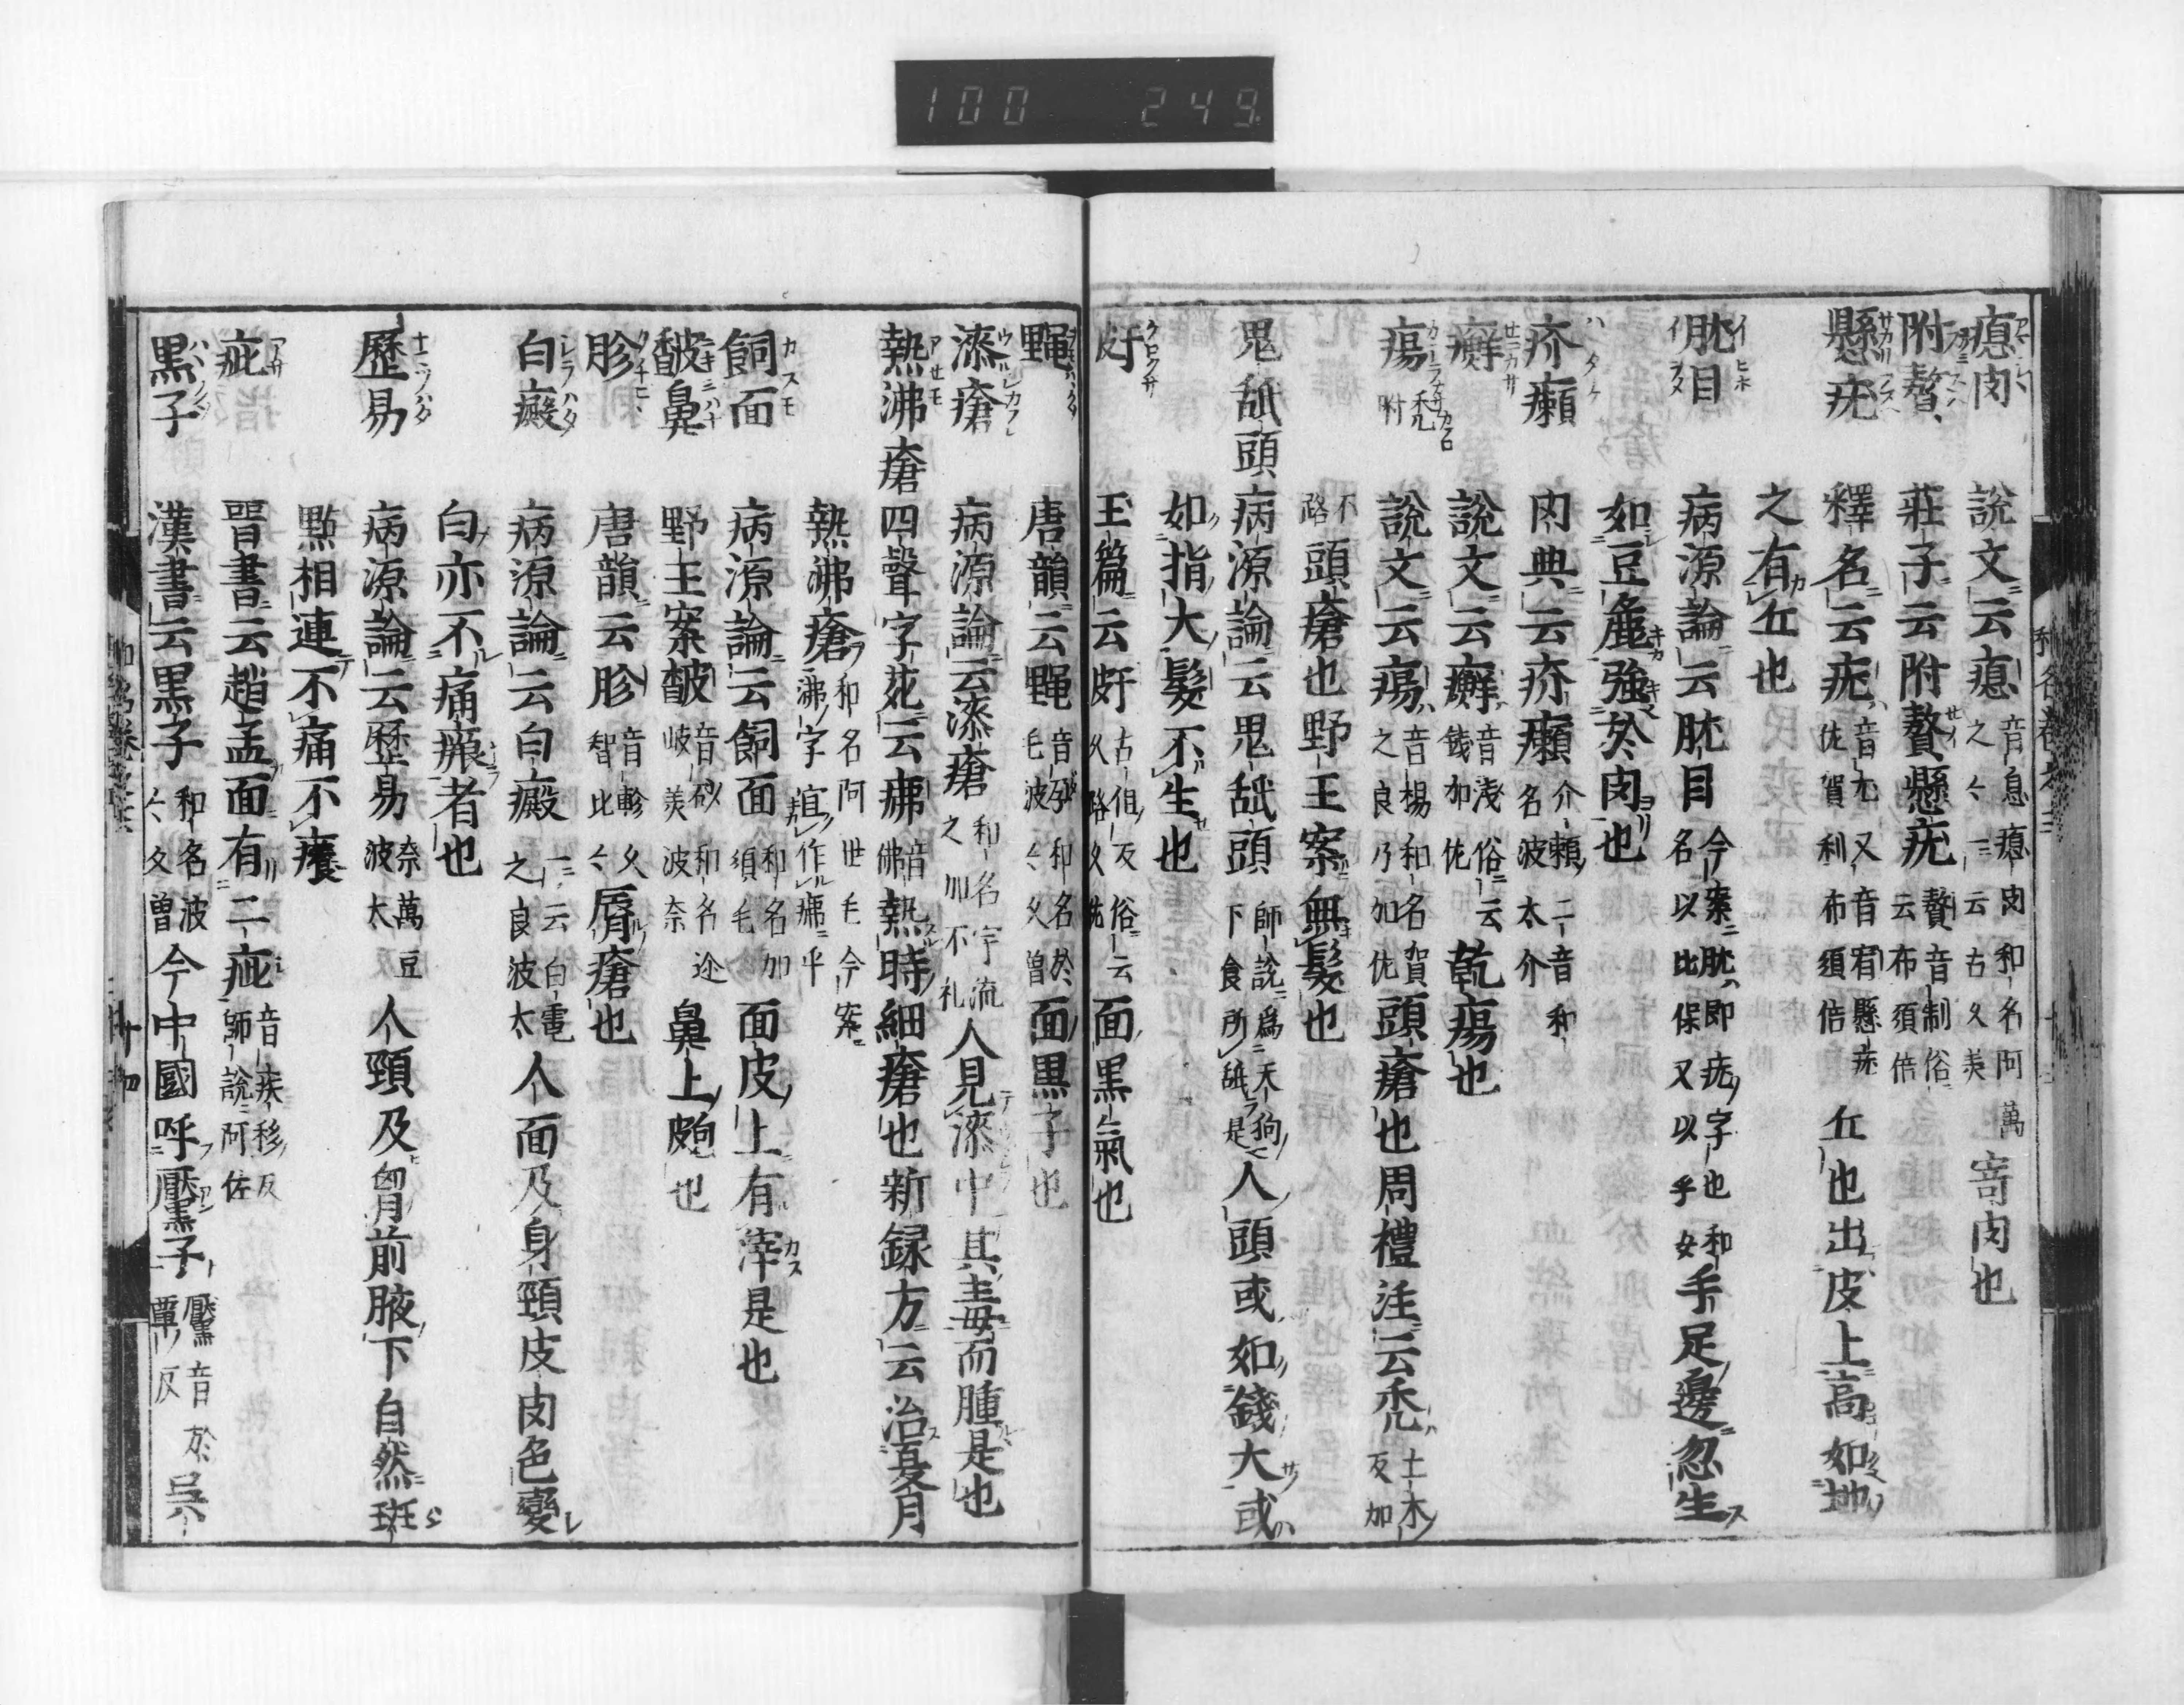 100 249
瘜肉 說文云瘜 音息瘜肉和名阿萬之々一云古久美 寄肉也
附贅 莊子云附贅懸疣 贅音制俗云布須倍
懸疣 釋名云疣 音尤又音宥懸疣佐賀利布須倍 丘也出皮上高如地
之有丘也
肬目 病源論云肬目 今案肬即疣字也和名以比保又以乎女 手足邊忽生
如豆麁強於肉也
疥癩 内典云疥癩 介頼二音和名波太介
癬 說文云癬 音淺俗云錢加佐 乾瘍也
瘍 禿附 說文云瘍 音楊和名賀之良乃加佐 頭瘡也周禮注云禿 土木反加
不路 頭瘡也野王案無髮也
鬼舐頭 病源論云鬼舐頭 師說爲天狗下食所舐是 人頭或如錢大或
如指大髮不生也
皯 玉篇云皯 古但反俗云久路久佐 面黑氣也
䵴 唐韻云䵴 音孕和名於毛波々久曽 面黒子也
漆瘡 病源論云漆瘡 和名宇流之加不礼 人見漆中其毒而腫是也
熱沸瘡 四聲字苑云疿 音佛 熱時細瘡也新録方云治夏月
熱沸瘡 和名阿世毛今案沸字宜作疿乎
飼面 病源論云飼面 和名加須毛 面皮上有滓是也
皶鼻 野王案皶 音砂和名迩岐美波奈 鼻上皰也
胗 唐韻云胗 音軫久智比々 脣瘡也
白癜 病源論云白癜 一云白電之良波太 人面及身頸皮肉色變
白亦不痛癢者也
歷易 病源論云歷易 奈萬豆波太 人頸及胷前腋下自然斑
點相連不痛不癢
疵 晋書云趙孟面有二疵 音疾移反師說阿佐
黒子 漢書云黒子 和名波々久曽 今中國呼黶子 黶音於覃反 吳